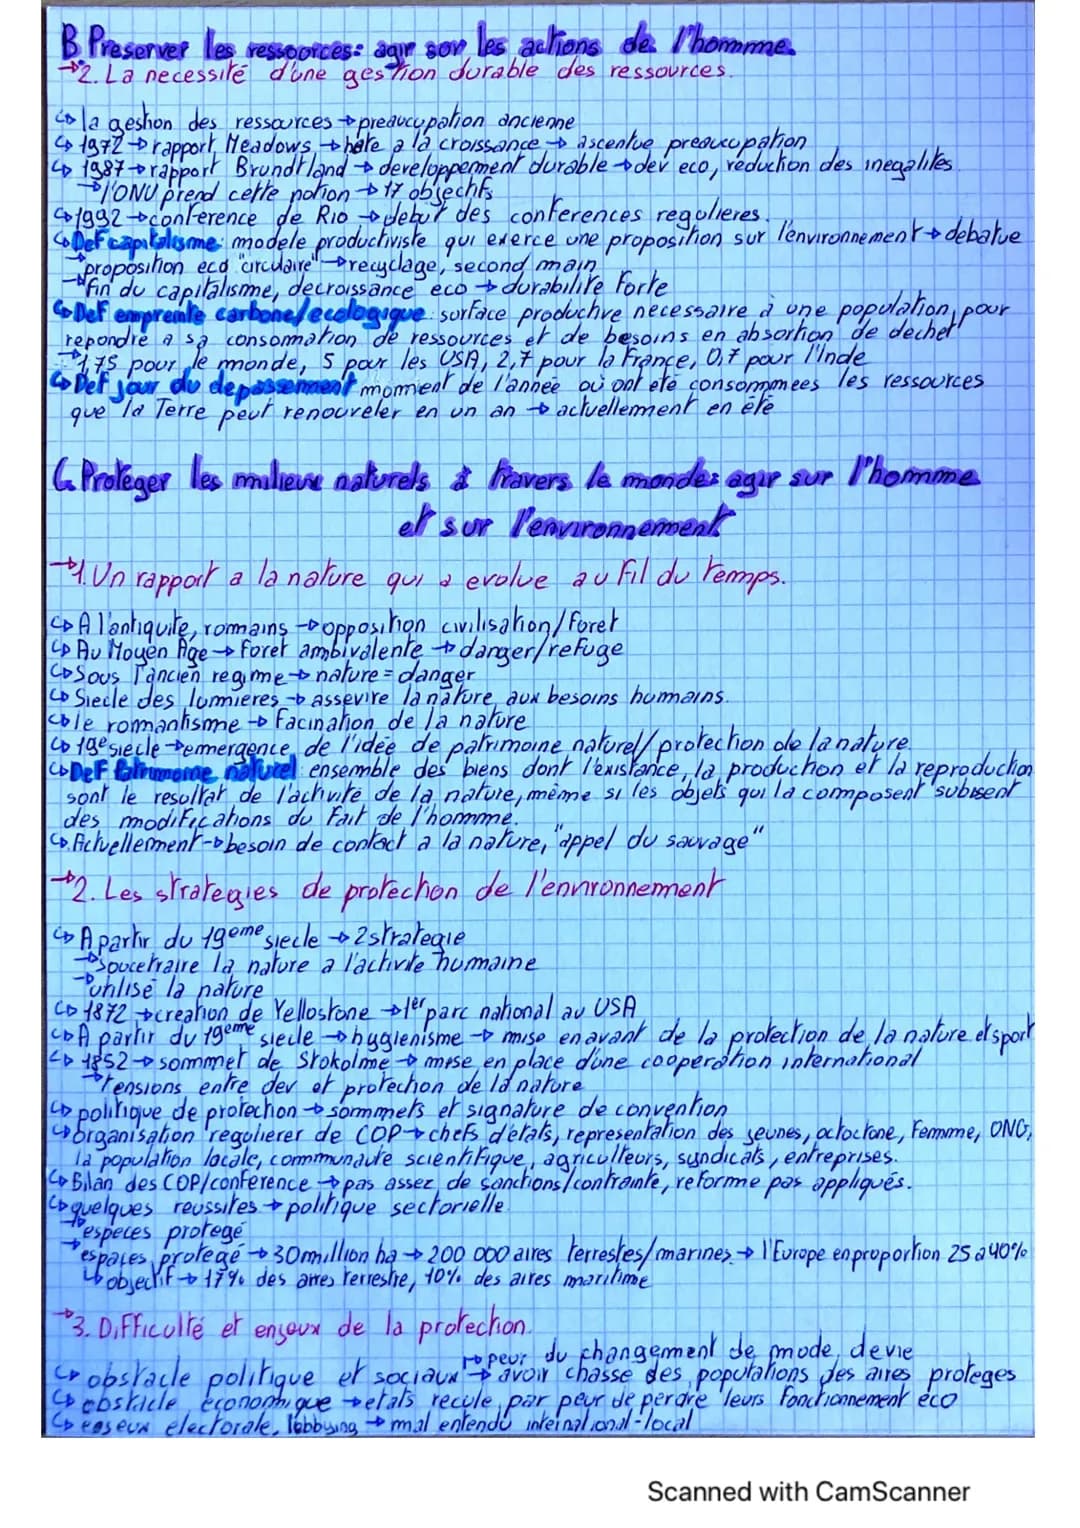 B Preserver les ressources: agir sor les actions de l'homme.
→2. La necessité d'une gestion durable des ressources.
↳ la gestion des ressources → preaucupation ancienne
↳ 1972 → rapport Meadows → halte a la croissance → ascentue preaucupation
↳ 1987 → rapport Brundtland → developpement durable → dev eco, reduction des inegalites.
→ l'ONU prend cette notion → 17 objectifs
↳ 1992 → conference de Rio → debut des conferences regulieres.
↳ Def capitalisme: modele productiviste qui exerce une proposition sur l'environnement → debatue
→ proposition eco "circulaire" → recyclage, second main
→ fin du capitalisme, decroissance eco → durabilite forte
↳ Def empreinte carbone/ecologique: surface productive necessaire à une population, pour
repondre a sa consommation de ressources et de besoins en absortion de dechet
→ 1,75 pour le monde, 5 pour les USA, 2,7 pour la France, 0,7 pour l'Inde
↳ Def jour du depassement moment de l'année où ont été consommees les ressources
que la Terre peut renouveler en un an → actuellement en été
C. Proteger les milieux naturels à travers le monde: agir sur l'homme
et sur l'environnement
→1. Un rapport a la nature qui a evolue au fil du temps.
↳ A l'antiquite, romains → opposition civilisation/foret
↳ Au Moyen Age → foret ambivalente → danger/refuge
↳ Sous l'ancien regime → nature = danger
↳ Siecle des lumieres → assevire la nature aux besoins humains.
↳ le romantisme → facination de la nature
↳ 19e siecle → emergence de l'idée de patrimoine naturel/protection de la nature.
↳ Def Patrimoine naturel: ensemble des biens dont l'existance, la production et la reproduction
sont le resultat de l'activité de la nature, même si les objets qui la composent subisent
des modifications du fait de l'homme.
↳ Actuellement → besoin de contact a la nature, "appel du sauvage"
→2. Les strategies de protection de l'environnement
↳ A partir du 19eme siecle → 2 strategie
→ soucetraire la nature a l'activite humaine
→ utilisé la nature
↳ 1872 → creation de Yellostone → 1er parc national au USA
↳ A partir du 19eme siecle → hygienisme → mise en avant de la protection de la nature et sport
↳ 1852 → sommet de Stokolme → mise en place d'une cooperation international
→ tensions entre dev et protection de la nature
↳ politique de protection → sommets et signature de convention
↳ organisation regulierer de COP → chefs d'états, representation des jeunes, octoctone, femme, ONG,
la population locale, communaute scientifique, agriculteurs, syndicats, entreprises.
↳ Bilan des COP/conference → pas assez de sanctions/contrainte, reforme pas appliqués.
↳ quelques reussites → politique sectorielle
→ especes protegé
→ espaces protegé → 30 million ha → 200 000 aires terrestes/marines → l'Europe en proportion 25 a 40%
↳ objectif → 17% des aires terrestre, 10% des aires maritime
→3. Difficulté et enjeux de la protection.
→ peur du changement de mode de vie
↳ obstacle politique et sociaux → avoir chasse des populations des aires proteges
↳ obstacle economique → etats recule par peur de perdre leurs fonctionnement eco
↳ enjeux electorale, lobbying → mal entendu international-local
Scanned with CamScanner